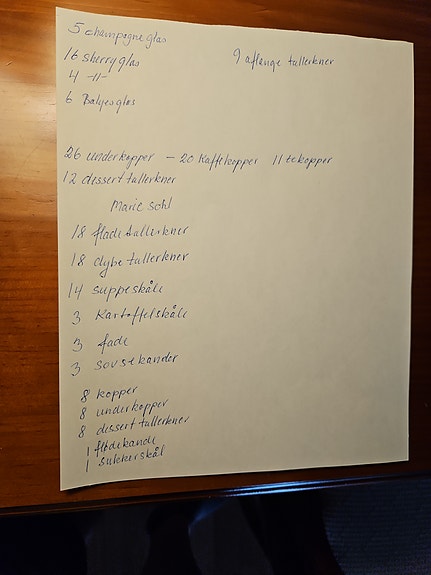 5 champagneglas
16 sherryglas 9 aflange tallerkner
4 -11-
6 glas
26 underkopper - 20 Kaffekopper 11 tekopper
12 desserttallerkner
Marie Sohl
18 flade tallerkner
18 dybe tallerkner
14 suppeskåle
3 Kartoffelskåle
3 fade
3 sovsekander
8 kopper
8 underkopper
8 desserttallerkner
1 flødekande
1 sukkerskål